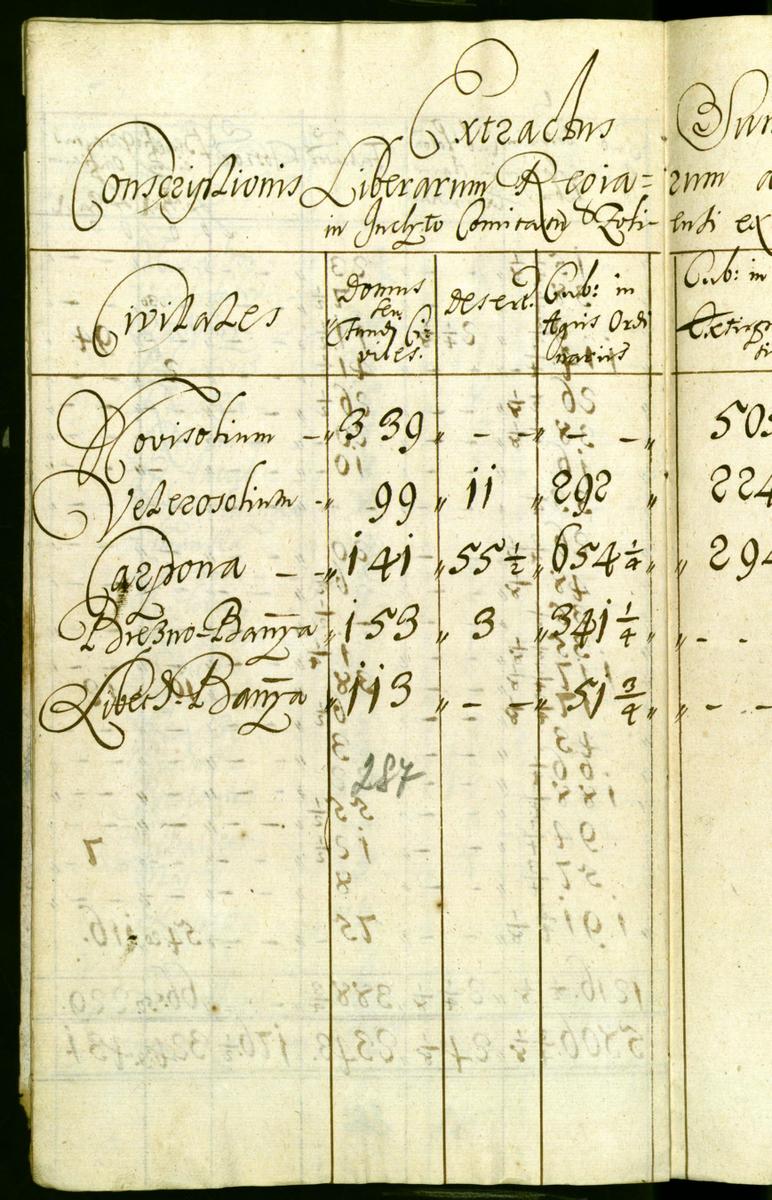 Extractus Sum
Conscriptionis Liberarum Regia= rum a
in Inclyto Comitatu Zoli- ensi ex
Civitates Domus seu Fundi Ci- viles. desert. Cub: in Agris Ordi narius Cub: in Extir
Novisolium - " 339 " - - " - - " 505
Veterosolium - " 99 " 11 " 292 " 224
Carpona - - " 141 " 55 1/2 " 654 1/4 " " 294
Brezno-Banya " 153 " 3 " 341 1/4 " - -
Libeth-Banya " 113 " - - " 51 3/4 " " - -
287